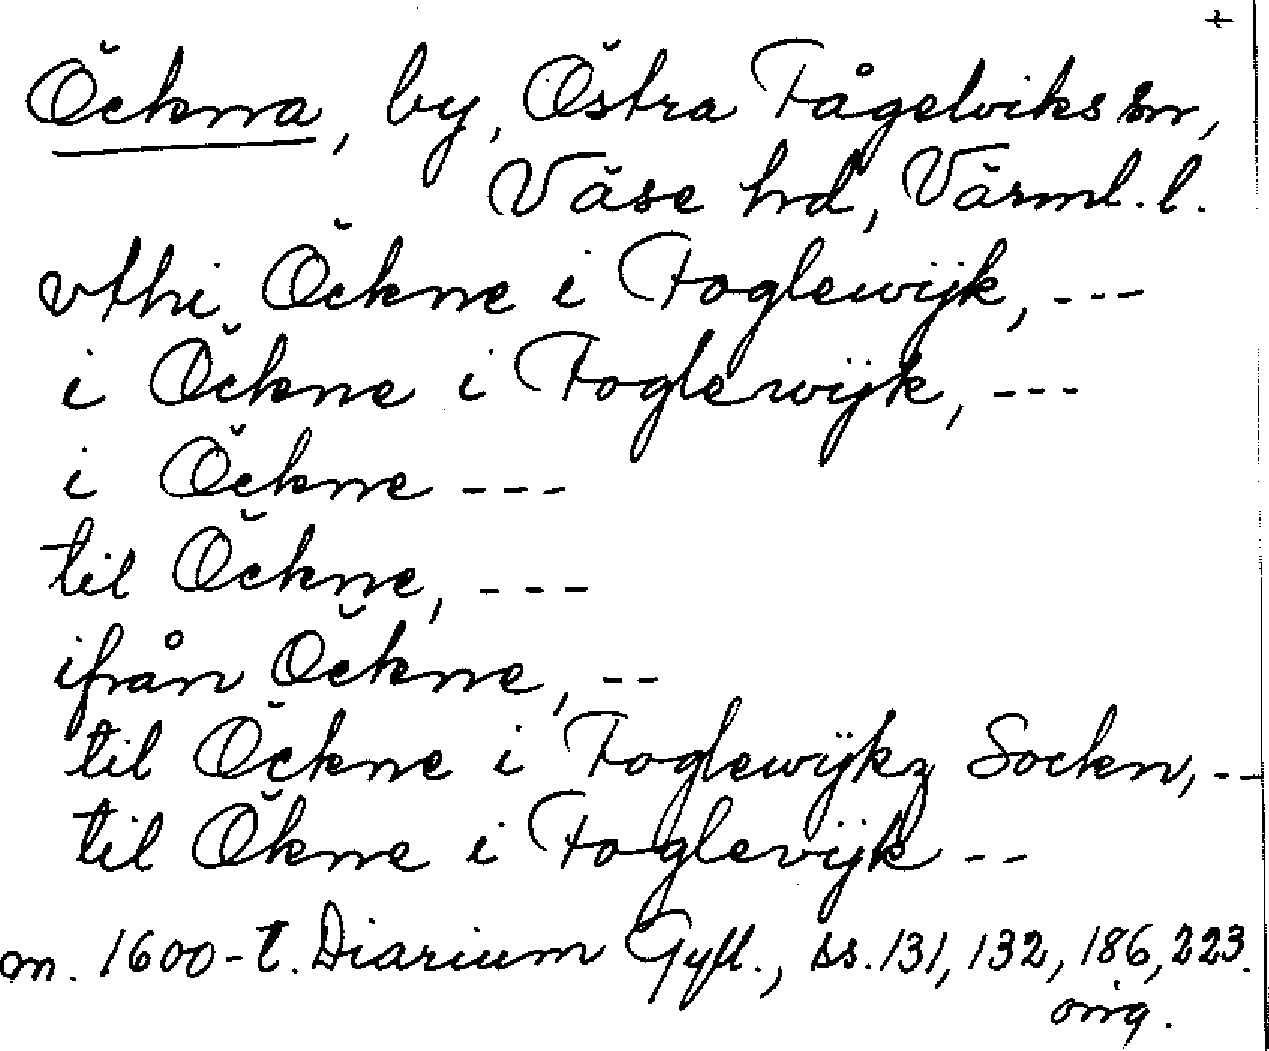 +
Öckna, by, Östra Fågelviks sn,
Väse hd, Värml. l.
vthi Öckne i Foglewijk, ---
i Öckne i Foglewijk, ---
i Öckne ---
til Öckne, ---
ifrån Öckne, --
til Öckne i Foglewijkz Sockn, --
til Ökne i Foglevijk --
m. 1600-t. Diarium Gyll., ss. 131, 132, 186, 223.
orig.